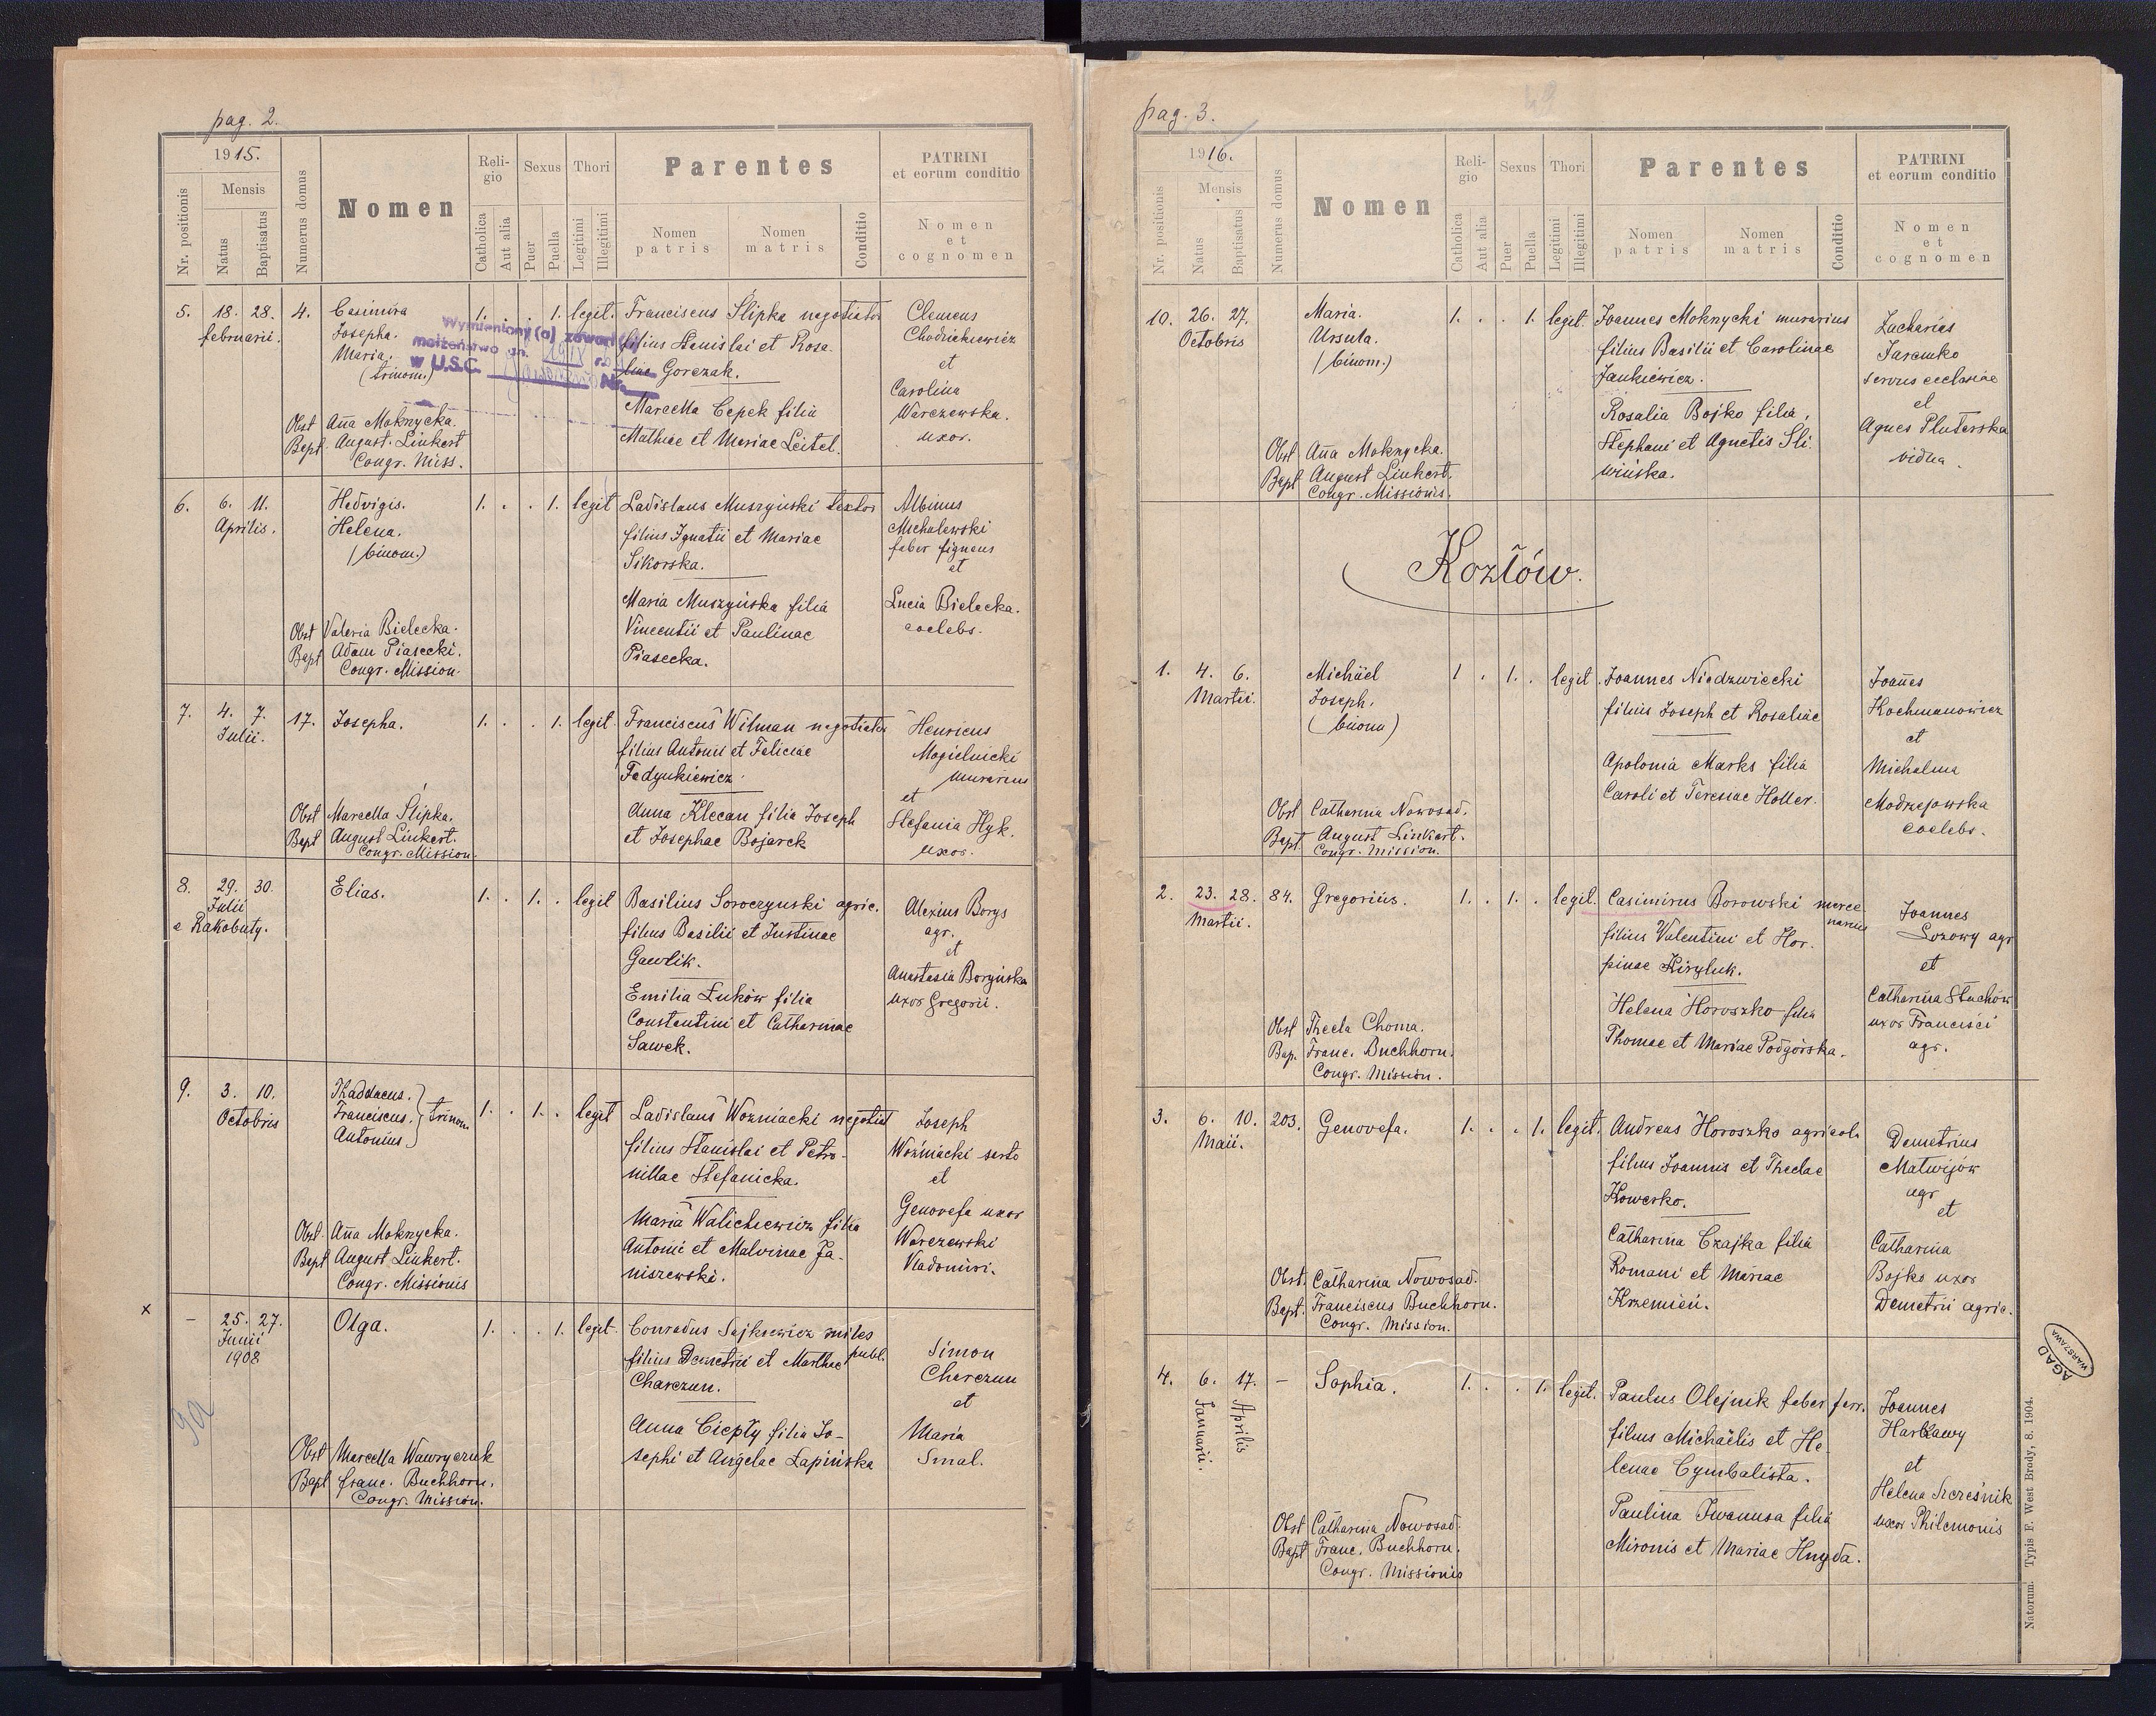 pag. 2.
1915.
Nr. positionis
Mensis
Natus
Baptisatus
Numerus domus
Nomen
Religio
Catholica
Aut alia
Sexus
Puer
Puella
Thori
Legitimi
Illegitimi
Parentes
Nomen patris
Nomen matris
Conditio
PATRINI
et eorum conditio
Nomen
et
cognomen
5. 18. 28. 4. Casimira 1. . . 1. legit. Franciscus Ślipka negotiator
februarii. Josepha. filius Stanislai et Rosa-
Maria. liae Gorczak.
(trinom.)
Wymieniony (a) zawarł (a)
małżeństwo dn.
w U.S.C. Nr.
Marcella Cepek filia
Mathiae et Mariae Leitel.
Clemens
Chodickiewicz
et
Carolina
Warczewska.
uxor.
Obst Aña Moknycka.
Bapt. August. Linkert
Congr. Miss.
6. 6. 11. Hedvigis. 1. . . 1. legit Ladislaus Muszyński textor
Aprilis. Helena. filius Ignatii et Mariae
(binom.) Sikorska.
Maria Muszyńska filia
Vincentii et Paulinae
Piasecka.
Albinus
Michalewski
faber ligneus
et
Lucia Bielecka.
coelebs.
Obst Valeria Bielecka.
Bapt Adam Piasecki.
Congr. Mission.
7. 4. 7. 17. Josepha. 1. . . 1. legit. Franciscus Wilman negotiator
Julii. filius Antonii et Feliciae
Fedynkiewicz.
Anna Klecan filia Joseph
et Josephae Bojarek
Henricus
Mogielnicki
murarius
et
Stefania Hyk.
uxor.
Obst Marcella Ślipka.
Bapt August Linkert.
Congr. Mission.
8. 29. 30. Elias. 1. . 1. . legit Basilius Soroczynski agric.
Julii filius Basilii et Justinae
e Rakobuty. Gawlik.
Emilia Łuków filia
Constantini et Catharinae
Sawek.
Alexius Borys
agr.
et
Anastasia Boryńska
uxor Gregorii.
9. 3. 10. Thaddaeus. 1. . 1. . legit Ladislaus Woźniacki negotiat
Octobris Franciscus. trinom. filius Stanislai et Petro-
Antonius nillae Stefanicka.
Maria Walichiewicz filia
Antonii et Malvinae Ja-
niszewski.
Joseph
Woźniacki
et
Genovefa uxor
Warczewski
Vladomiri.
Obst. Aña Moknycka.
Bapt August Linkert.
Congr. Missionis
x – 25. 27. Olga. 1. . . 1. legit. Conradus Sajkiewicz miles publ.
Junii filius Demetrii et Marthae
1908 Charczun.
9a
Anna Ciepły filia Jo-
sephi et Angelae Łapińska
Simon
Charczun
et
Maria
Smal.
Obst Marcella Wawryczuk
Bapt franc. Buchhorn.
Congr. Mission.
pag. 3.
1916.
Nr. positionis
Mensis
Natus
Baptisatus
Numerus domus
Nomen
Religio
Catholica
Aut alia
Sexus
Puer
Puella
Thori
Legitimi
Illegitimi
Parentes
Nomen patris
Nomen matris
Conditio
PATRINI
et eorum conditio
Nomen
et
cognomen
10. 26. 27. Maria. 1. . . 1. legit. Joannes Moknycki murarius
Octobris Ursula. filius Basilii et Carolinae
(binom.) Jankiewicz.
Rosalia Bojko filia,
Stephani et Agnetis Śli-
wińska.
Zacharias
Jaremko
servus ecclesiae
et
Agnes Pluterska
vidua.
Obst Aña Moknycka.
Bapt August Linkert.
Congr. Missionis.
Kozłów.
1. 4. 6. Michäel 1 . 1. . legit. Joannes Niedzwiecki
Martii. Joseph. filius Joseph et Rosaliae
(binom)
Apolonia Marks filia
Caroli et Teresiae Holler.
Joañes
Kochmanowicz
et
Michalina
Modrzejowska
coelebs.
Obst Catharina Nowosad.
Bapt. August Linkert.
Congr. Mission.
2. 23. 28. 84. Gregorius. 1. . 1. . legit. Casimirus Borowski merce
Martii. narius
filius Valentini et Hor-
pinae Kiryluk.
Helena Horoszko filia
Thomae et Mariae Podgórska.
Joannes
Łozowy agr
et
Catharina Stuchów
uxor Francisci
agr.
Obst Thecla Choma.
Bap. Franc. Buchhorn.
Congr. Mission.
3. 6. 10. 203. Genovefa. 1. . . 1. legit. Andreas Horoszko agricola
Maii. filius Joannis et Theclae
Kowerko.
Catharina Czajka filia
Romani et Mariae
Krzemień.
Demetrius
Matwijów
agr
et
Catharina
Bojko uxor
Demetrii agric.
Obst. Catharina Nowosad.
Bapt. Franciscus Buchhorn.
Congr. Mission.
4. 6. 17. – Sophia. 1. . . 1. legit. Paulus Olejnik faber ferr.
Januarii. Aprilis filius Michaëlis et He-
lenae Cymbalista.
Paulina Iwanusa filia
Mironis et Mariae Hnyda.
Joannes
Harkawy
et
Helena Szcześnik
uxor Philemonis
Obst Catharina Nowosad.
Bapt Franc. Buchhorn.
Congr. Missionis
AGAD
WARSZAWA
Natorum. Typis F. West Brody, 8. 1904.